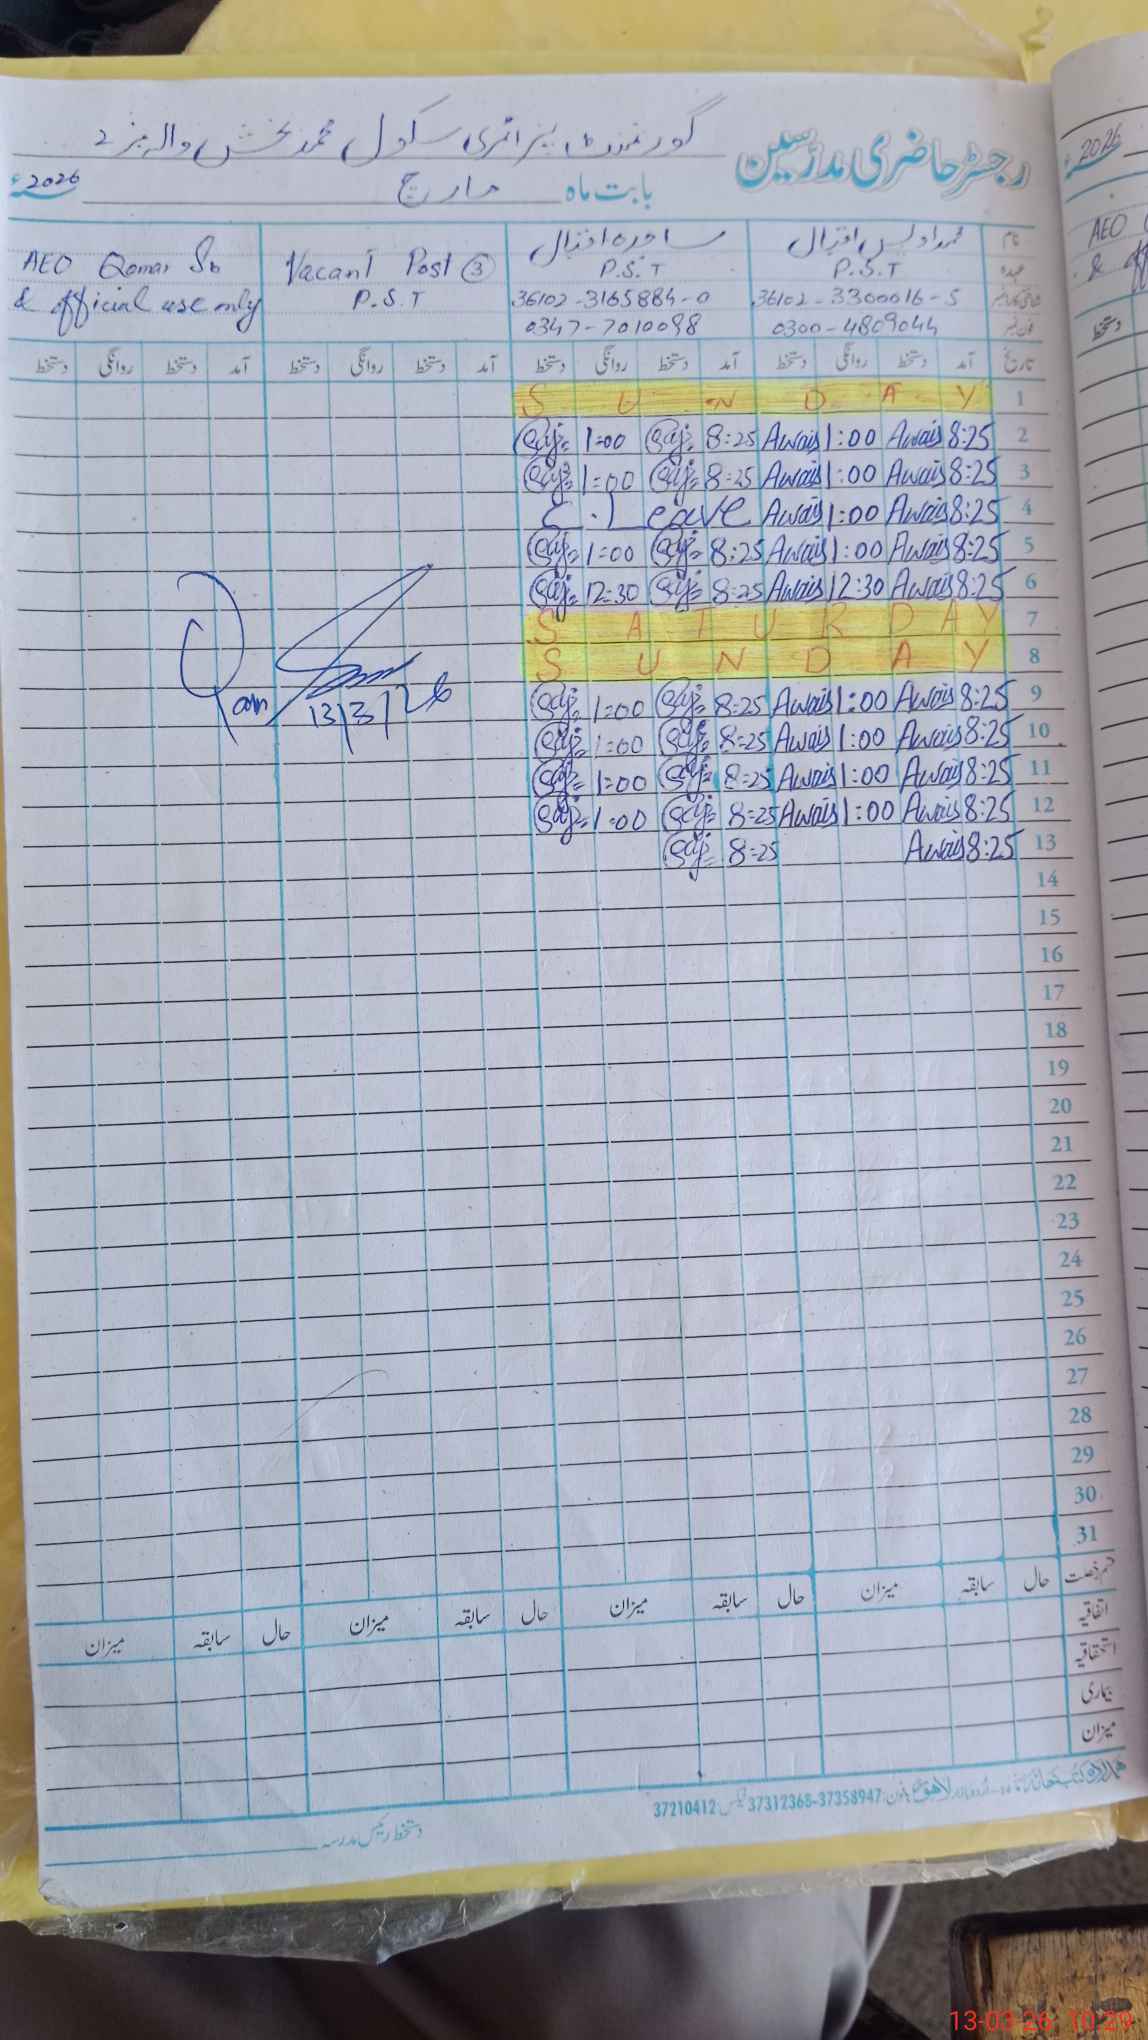 رجسٹر حاضری مدرسین
گورنمنٹ پرائمری سکول محمد بخش والہ نمبر 2
بابت ماہ مارچ 2026ء
نام محمد اویس اقبال ساجدہ اقبال Vacant Post ③ AEO Qamar Sb
عہدہ P.S.T P.S.T P.S.T & official use only
شناختی کارڈ نمبر 36102-3300016-5 36102-3165884-0
فون نمبر 0300-4809044 0347-7010098
تاریخ آمد دستخط روانگی دستخط آمد دستخط روانگی دستخط آمد دستخط روانگی دستخط آمد دستخط روانگی دستخط
S U N D A Y 1
Saj 1:00 Saj 8:25 Awais 1:00 Awais 8:25 2
Saj 1:00 Saj 8:25 Awais 1:00 Awais 8:25 3
C. Leave Awais 1:00 Awais 8:25 4
Saj 1:00 Saj 8:25 Awais 1:00 Awais 8:25 5
Saj 12:30 Saj 8:25 Awais 12:30 Awais 8:25 6
S A T U R D A Y 7
S U N D A Y 8
Saj 1:00 Saj 8:25 Awais 1:00 Awais 8:25 9
Saj 1:00 Saj 8:25 Awais 1:00 Awais 8:25 10
Saj 1:00 Saj 8:25 Awais 1:00 Awais 8:25 11
Saj 1:00 Saj 8:25 Awais 1:00 Awais 8:25 12
Saj 8:25 Awais 8:25 13
13/3/26
14
15
16
17
18
19
20
21
22
23
24
25
26
27
28
29
30
31
قسم رخصت حال سابقہ میزان حال سابقہ میزان حال سابقہ میزان حال سابقہ میزان
اتفاقیہ
استحقاقیہ
بیماری
میزان
لاہور فون: 37358947-37312368 فیکس: 37210412
دستخط رئیس مدرسہ
2026ء
AEO
&
دستخط
13-03-26 10:29